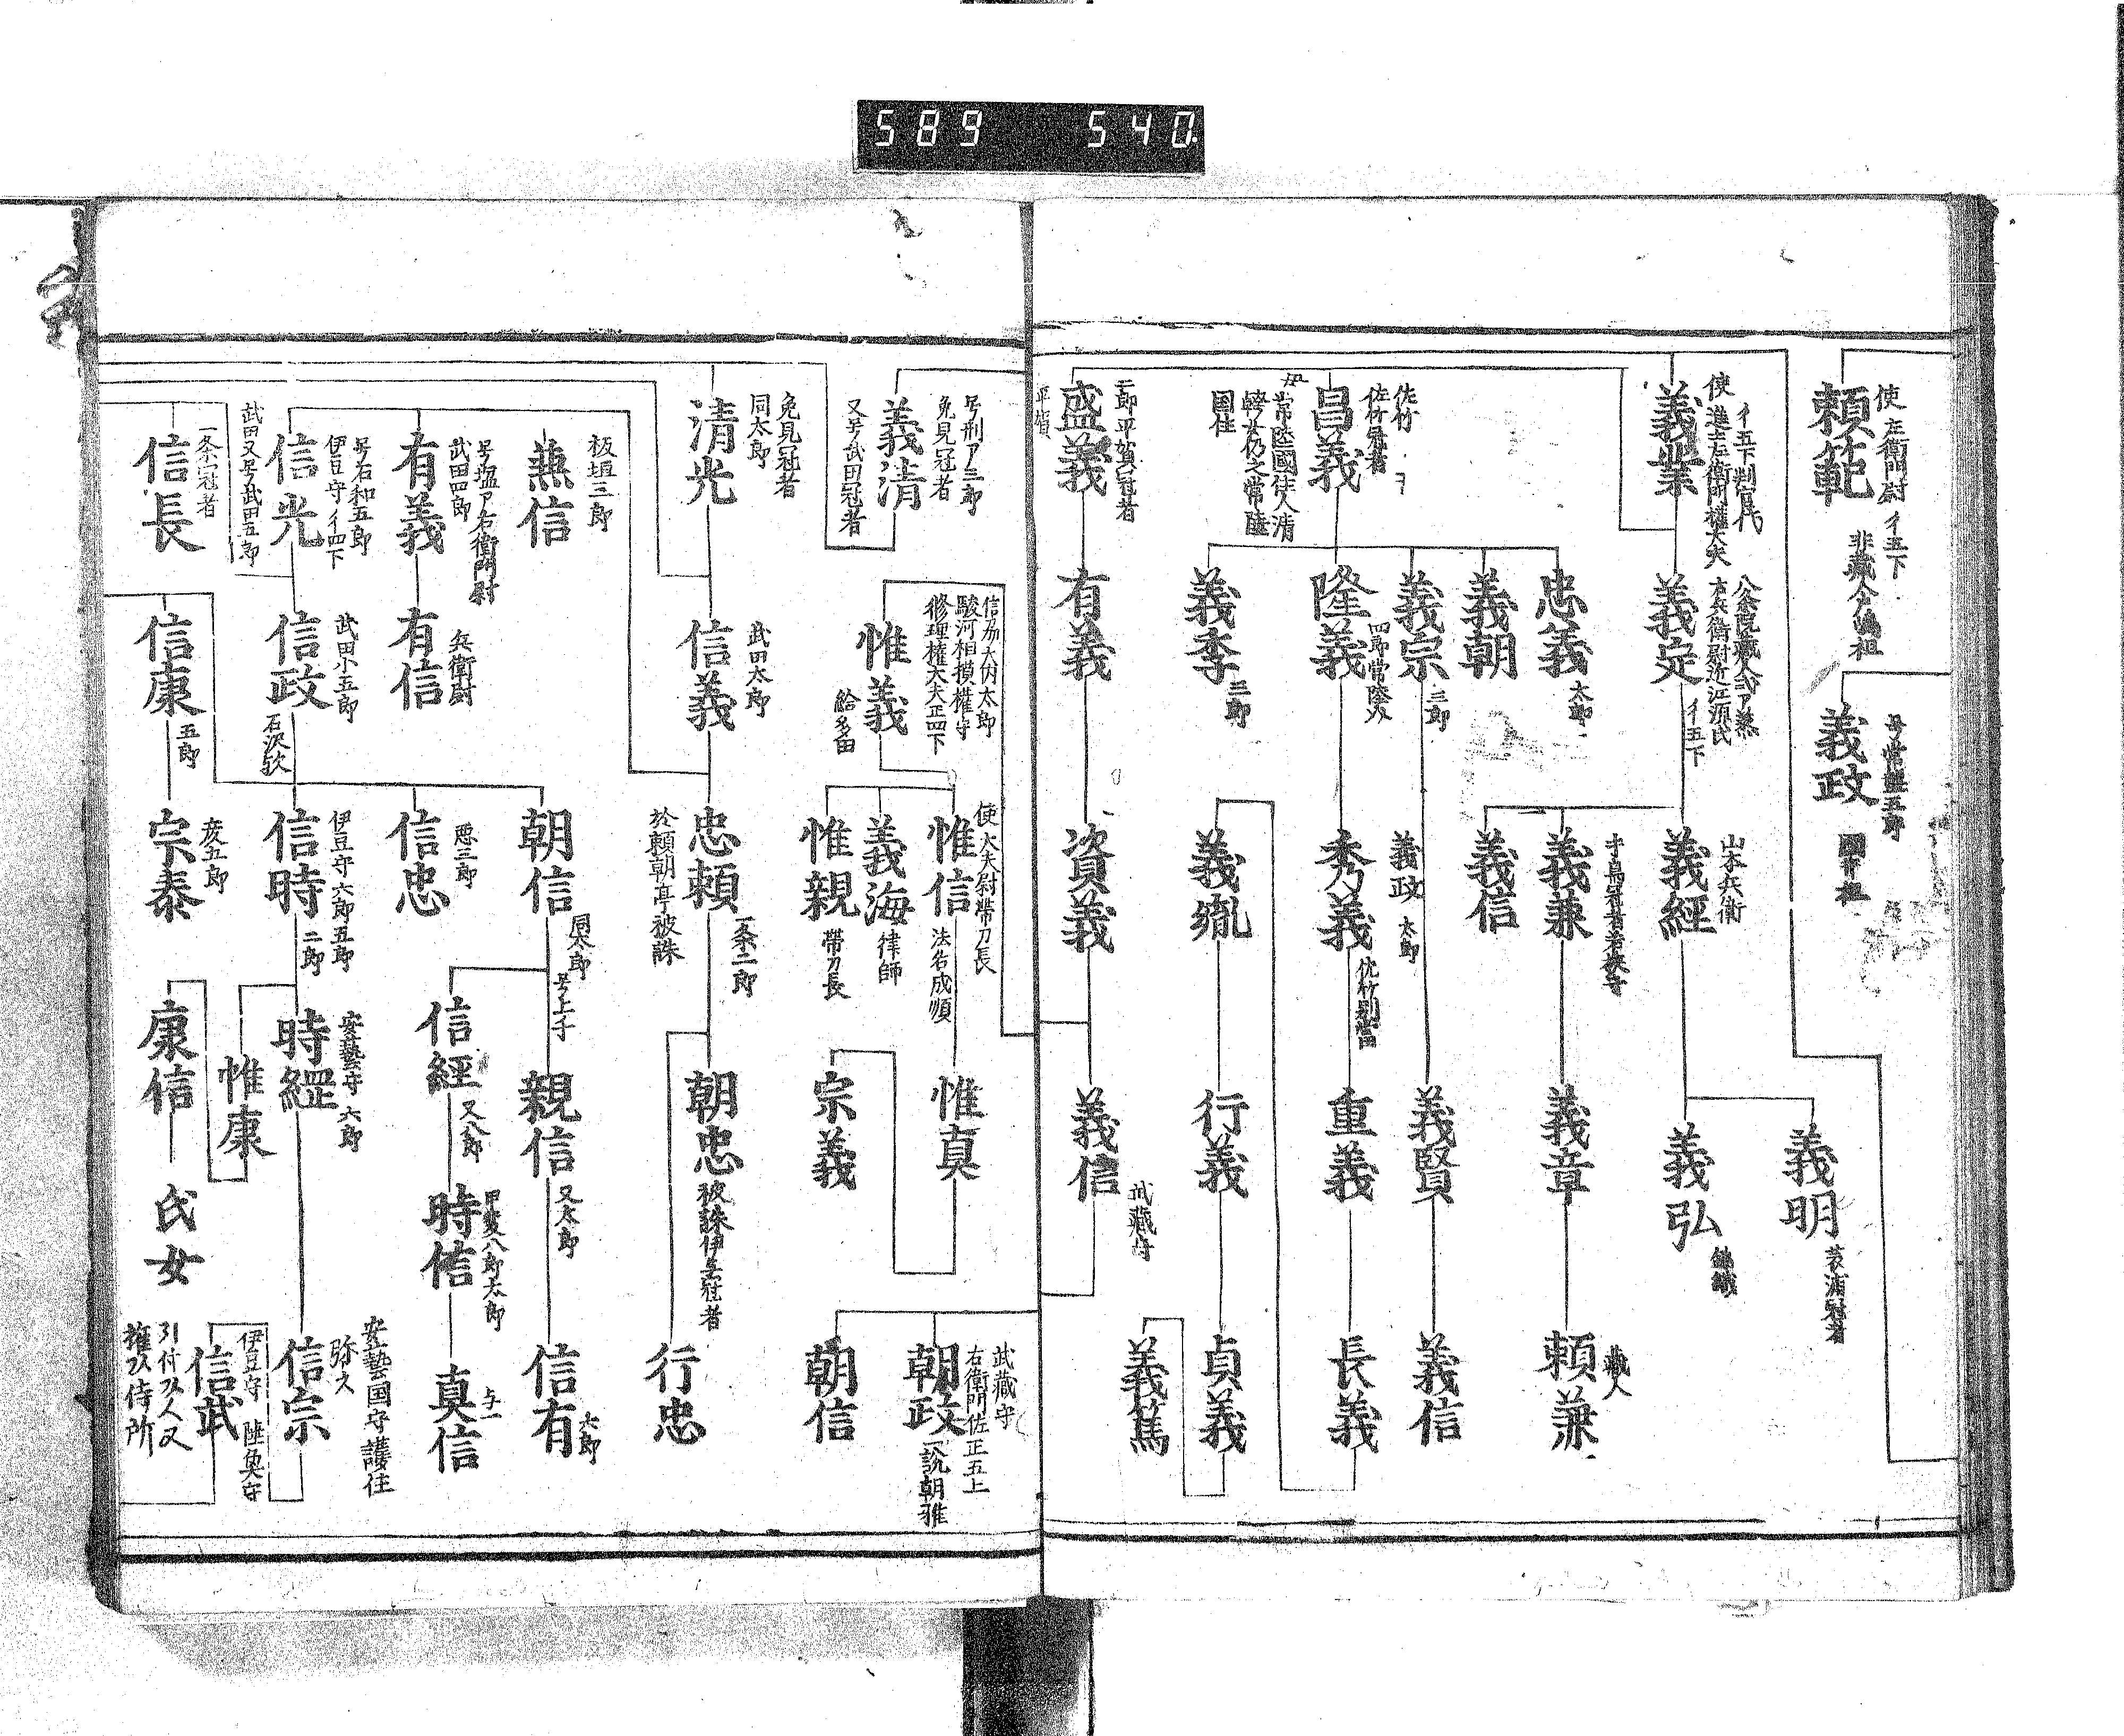 589 540
頼範
使左衛門尉 イ五下
義政
義業
イ五下判官代
使進士左衛門権大夫
義定
イ五下
義経
山本兵衛
義明
義弘
錦織
義兼
義章
頼兼
蔵人
義信
忠義
太郎
義朝
義宗
三郎
義賢
義信
昌義
佐竹
佐竹冠者
常陸國住人清
国住
隆義
四郎常陸介
秀義
義政 太郎
佐竹別當
重義
長義
義季
三郎
義胤
行義
貞義
義篤
盛義
二郎平賀冠者
平賀
有義
資義
義信
武藏守
義清
号刑ア三郎
免見冠者
又号武田冠者
惟義
信州大内太郎
駿河相摸権守
修理権大夫正四下
惟信
使大夫尉帯刀長
法名成順
義海
律師
惟親
帯刀長
惟真
宗義
朝政
武藏守
右衛門佐正五上
一説朝雅
朝信
清光
免見冠者
同太郎
信義
武田太郎
忠頼
一条二郎
於頼朝亭被誅
朝忠
被誅伊豆冠者
行忠
兼信
板垣三郎
有義
号塩ア右衛門尉
武田四郎
有信
兵衛尉
信光
号石和五郎
伊豆守イ四下
武田又号武田五郎
信政
武田小五郎
石沢欤
朝信
同太郎
号上千
親信
又太郎
信有
六郎
信経
又八郎
時信
甲斐八郎太郎
真信
与一
信忠
悪三郎
信時
伊豆守六郎五郎
二郎
時綱
安藝守 六郎
信宗
安藝国守護住
弥六
信武
伊豆守 陸奥守
信長
一条冠者
信康
五郎
宗泰
惟康
康信
氏女